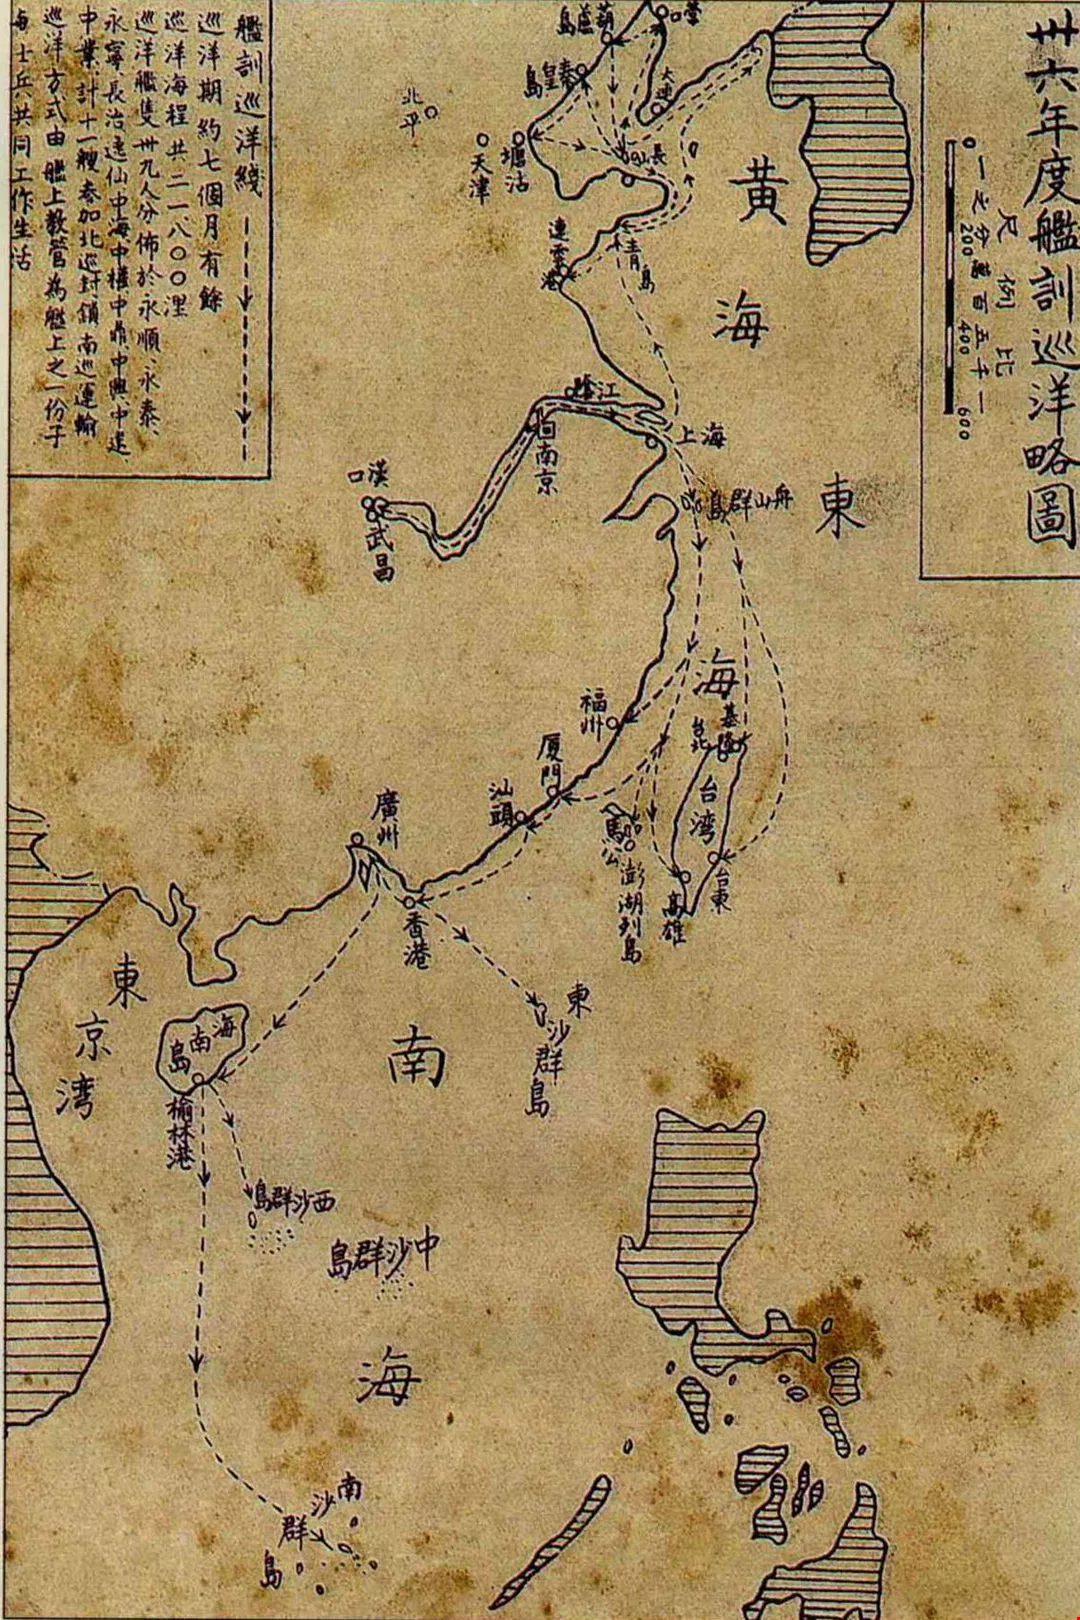 卅六年度艦訓巡洋略圖
比例尺
一千五百萬分之一
0 200 400 600
艦訓巡洋綫
巡洋期約七個月有餘
巡洋海程共二一八〇〇浬
巡洋艦隻卅九人分佈於永順、永泰、
永寧、長治、逸仙、中海、中權、中鼎、中興、中建、
中業、計十一艘参加北巡封鎖南巡運輸
巡洋方式由艦上教管為艦上之一份子
海士兵共同工作生活
營口
葫蘆島
秦皇島
大連
北平
天津
塘沽
長山
黄海
青島
連雲港
江陰
南京
上海
漢口
武昌
舟山群島
東海
福州
基隆
台北
厦門
台湾
汕頭
馬公
澎湖列島
高雄
台東
廣州
香港
東沙群島
東京湾
海南島
榆林港
南海
西沙群島
中沙群島
南沙群島